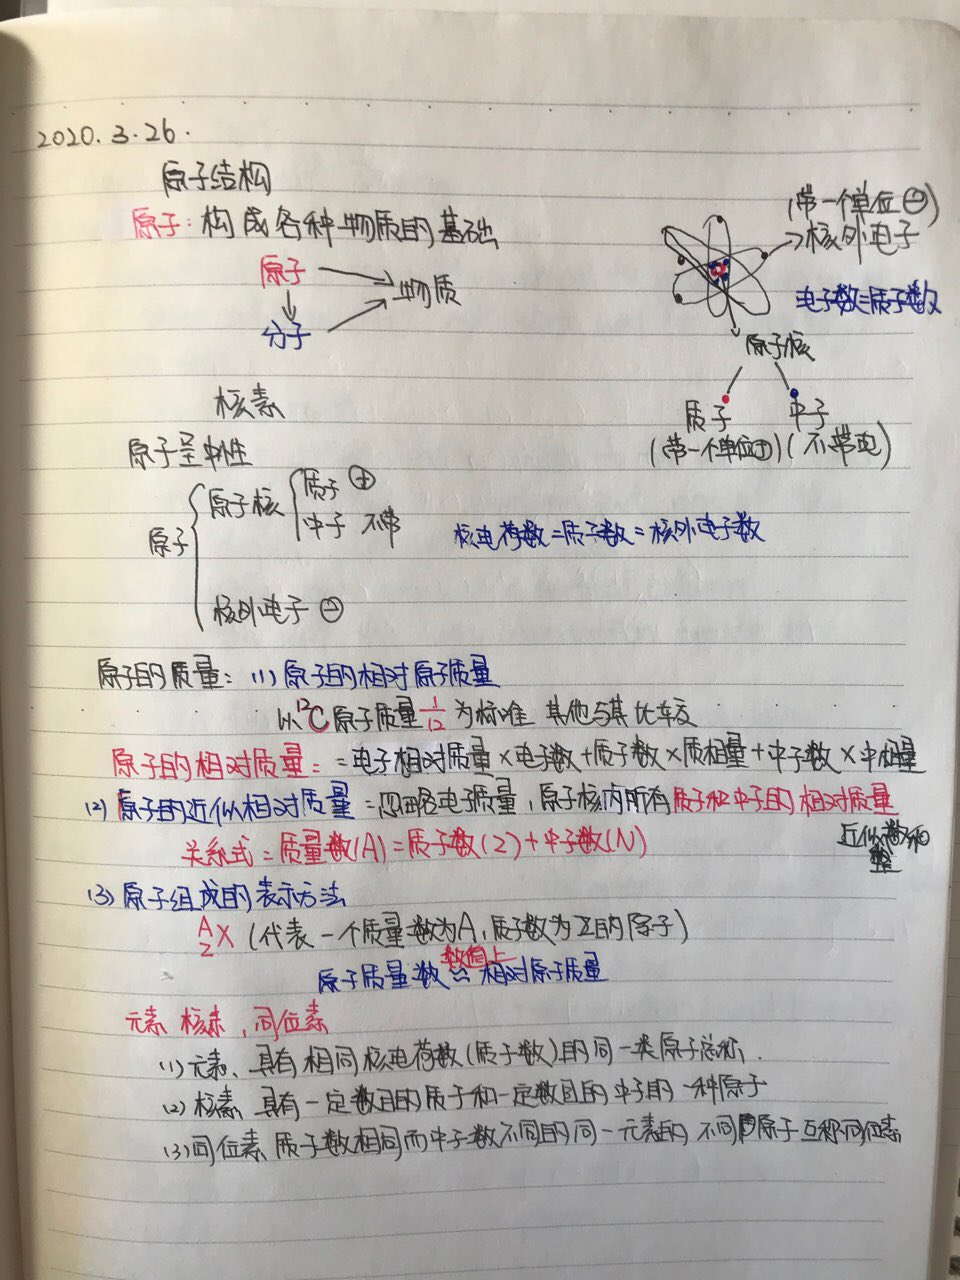 2020.3.26.
原子结构
原子:构成各种物质的基础
原子 → 物质
↓
分子
(带一个单位⊖)
→核外电子
电子数=质子数
原子核
质子 中子
(带一个单位⊕) (不带电)
核素
原子呈中性
原子 原子核 质子 ⊕
中子 不带
核外电子 ⊖
核电荷数=质子数=核外电子数
原子的质量: (1) 原子的相对原子质量
以¹²C原子质量1/12为标准 其他与其比较
原子的相对质量: =电子相对质量×电子数+质子数×质相量+中子数×中相量
(2) 原子的近似相对质量=忽略电子质量,原子核内所有质子和中子的相对质量
近似数和
整
关系式=质量数(A)=质子数(Z)+中子数(N)
(3) 原子组成的表示方法
A
Z X (代表一个质量数为A,质子数为Z的原子)
数值上
原子质量数≈相对原子质量
元素 核素,同位素
(1) 元素、具有相同核电荷数(质子数)的同一类原子总称.
(2) 核素 具有一定数目的质子和一定数目的中子的一种原子
(3) 同位素 质子数相同而中子数不同的同一元素的不同原子互称同位素